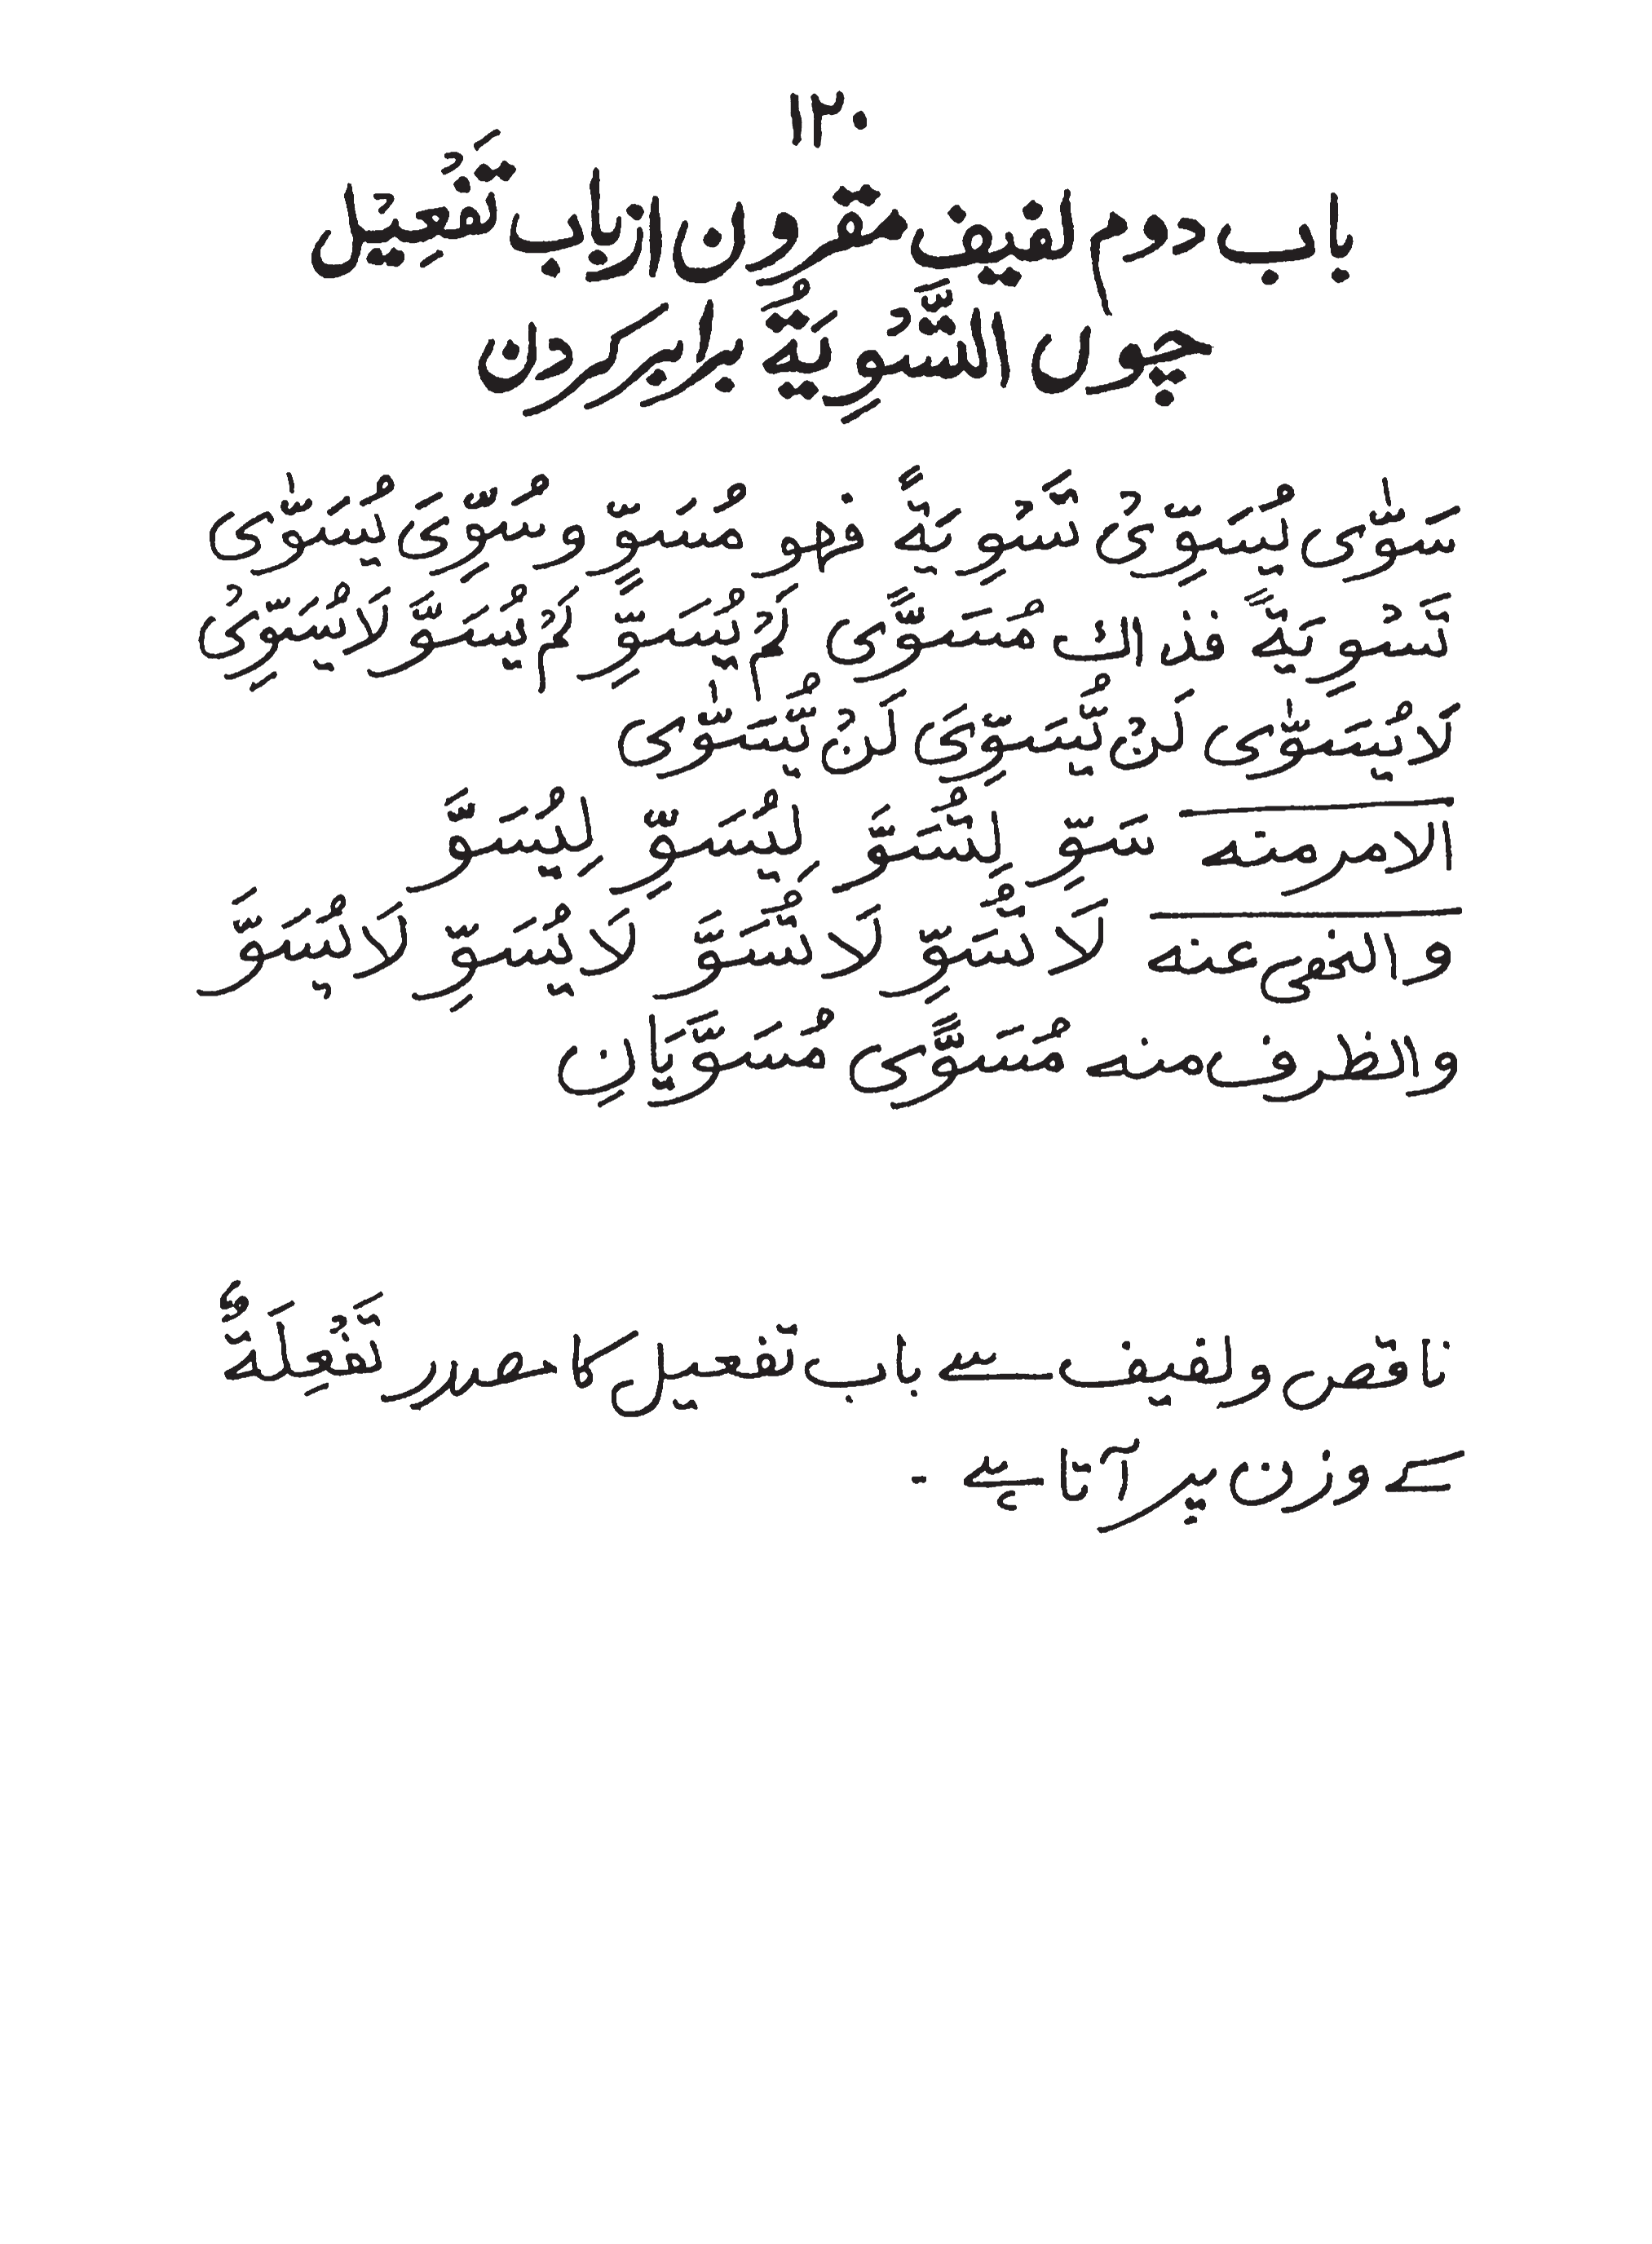 ١٢٠
باب دوم لفیف مقرون از باب تَفْعِیْل
چوں التَّسْوِیَةُ برابر کردن
سَوّٰی یُسَوِّیْ تَسْوِیَةً فهو مُسَوٍّ و سُوِّیَ یُسَوّٰی
تَسْوِیَةً فذاك مُسَوًّی لَمْ یُسَوِّ لَمْ یُسَوَّ لَا یُسَوِّیْ
لَا یُسَوّٰی لَنْ یُّسَوِّیَ لَنْ یُّسَوّٰی
الامر منه سَوِّ لِتُسَوَّ لِیُسَوِّ لِیُسَوَّ
والنهی عنه لَا تُسَوِّ لَا تُسَوَّ لَا یُسَوِّ لَا یُسَوَّ
والظرف منه مُسَوًّی مُسَوَّیَانِ
ناقص ولفیف سے باب تفعیل کا مصدر تَفْعِلَةٌ
کے وزن پر آتا ہے ۔